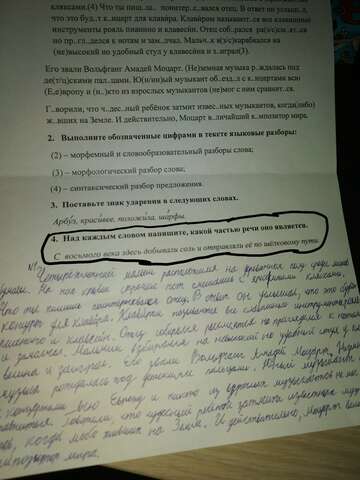 кляксами.(4) Что ты пиш..ш..
это буд..т к..нцерт для клавира. Клавиром называют..ся все клавишные
инструменты рояль пианино и клавесин. Отец
но пр..гл..делся к нотам и зам..лчал. Мальч..к в(з/с)карабкался на
(не)высокий но удобный стул у клавесина и з..играл(3).
Его звали Вольфганг Амадей Моцарт. (Не)земная музыка р..ждалась под
де(т/ц)скими пал..цами. Ю(н/нн)ый музыкант об..езд..л с к..нцертами всю
(Е,е)вропу и (н..)кто из взрослых музыкантов (не)мог с ним сравнит..ся.
Г..ворили, что ч..дес..ный ребёнок затмит извес..ных музыкантов, когда(либо)
ж..вших на Земле. И действительно, Моцарт в..личайший к..мпозитор мира.
2. Выполните обозначенные цифрами в тексте языковые разборы:
(2) – морфемный и словообразовательный разборы слова;
(3) – морфологический разбор слова;
(4) – синтаксический разбор предложения.
3. Поставьте знак ударения в следующих словах.
Арбуз, красивее, положила, шарфы.
4. Над каждым словом напишите, какой частью речи оно является.
С восьмого века здесь добывали соль и отправляли её по шёлковому пути.
№1 Четырехлетний малыш расположился на
бумаги. На пол
Что ты пишешь поинтересовался отец. В ответ он услышал, что это будет
концерт для клавира. Клавиром называют все клавишные инструменты рояль
пианино и клавесин. Отец собрался рассмеяться но пригляделся к нотам
и замолчал. Мальчик вскарабкался на невысокий но удобный стул у кла
весина и заиграл. Его звали Вольфганг Амадей Моцарт.
музыка рождалась под детскими пальцами. Юный музыкант
с концертами всю Европу и никто из взрослых музыкантов не мог
говорили, что чудесный ребенок затмит известных музы
когда либо живших на Земле. И действительно, Моцарт
композитор мира.